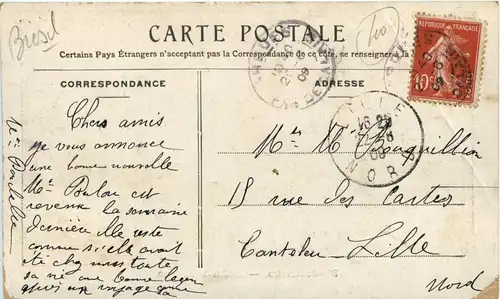 Brésil
CARTE POSTALE
Certains Pays Étrangers n'acceptant pas la Correspondance de ce côté, se renseigner à la
CORRESPONDANCE
ADRESSE
REPUBLIQUE FRANÇAISE
10c
LILLE
NORD
Chers amis
je vous annonce
une bonne nouvelle
Me est
revenu la semaine
dernière elle reste
comme si elle avait
été chez nous toute
sa une bonne leçon
un voyage comme
Mr Me Bouquillion
18 rue des Cartes
Canteleu Lille
Nord